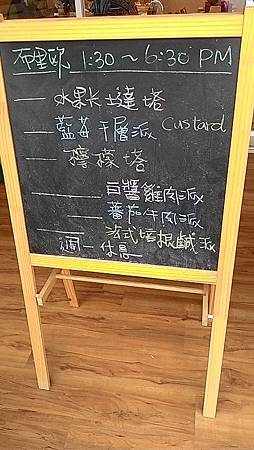 布里歐 1:30～6:30 PM
水果卡士達塔
藍莓千層派 Custard
檸檬塔
白醬雞肉派
蕃茄牛肉派
法式培根鹹派
週一休息